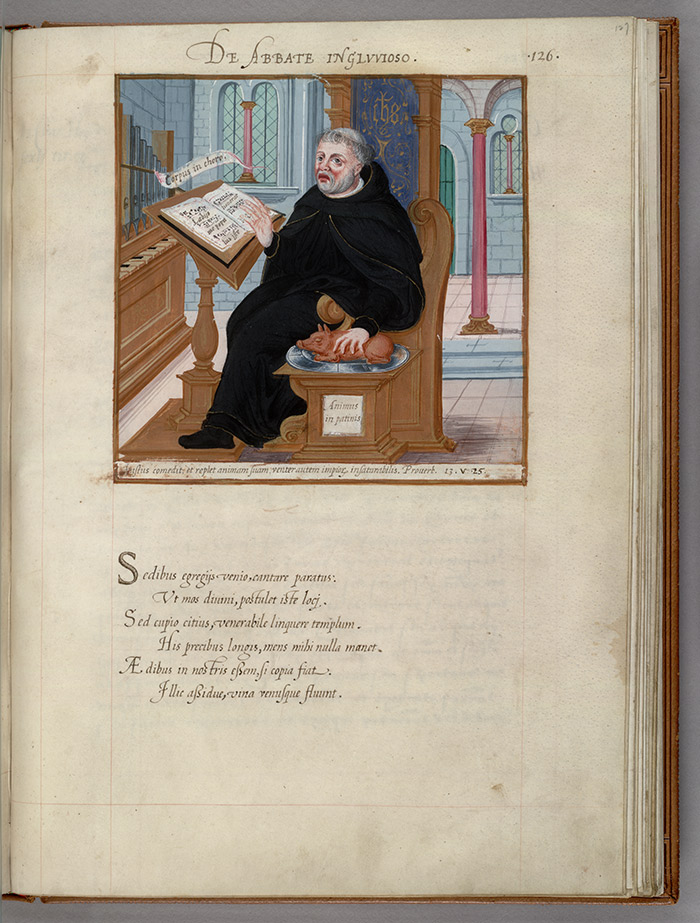 DE ABBATE INGLVVIOSO.
·126·
127
Corpus in choro.
ihs
Animus
in patinis.
Iustus comedit, et replet animam suam; venter autem impiorum insaturabilis. Prouerb. 13. v. 25.
Sedibus egregijs venio, cantare paratus:
Vt mos diuini, postulet iste locj.
Sed cupio citius, venerabile linquere templum.
His precibus longis, mens mihi nulla manet.
Ædibus in nostris essem, si copia fiat.
Illic assidue, vina venusque fluunt.